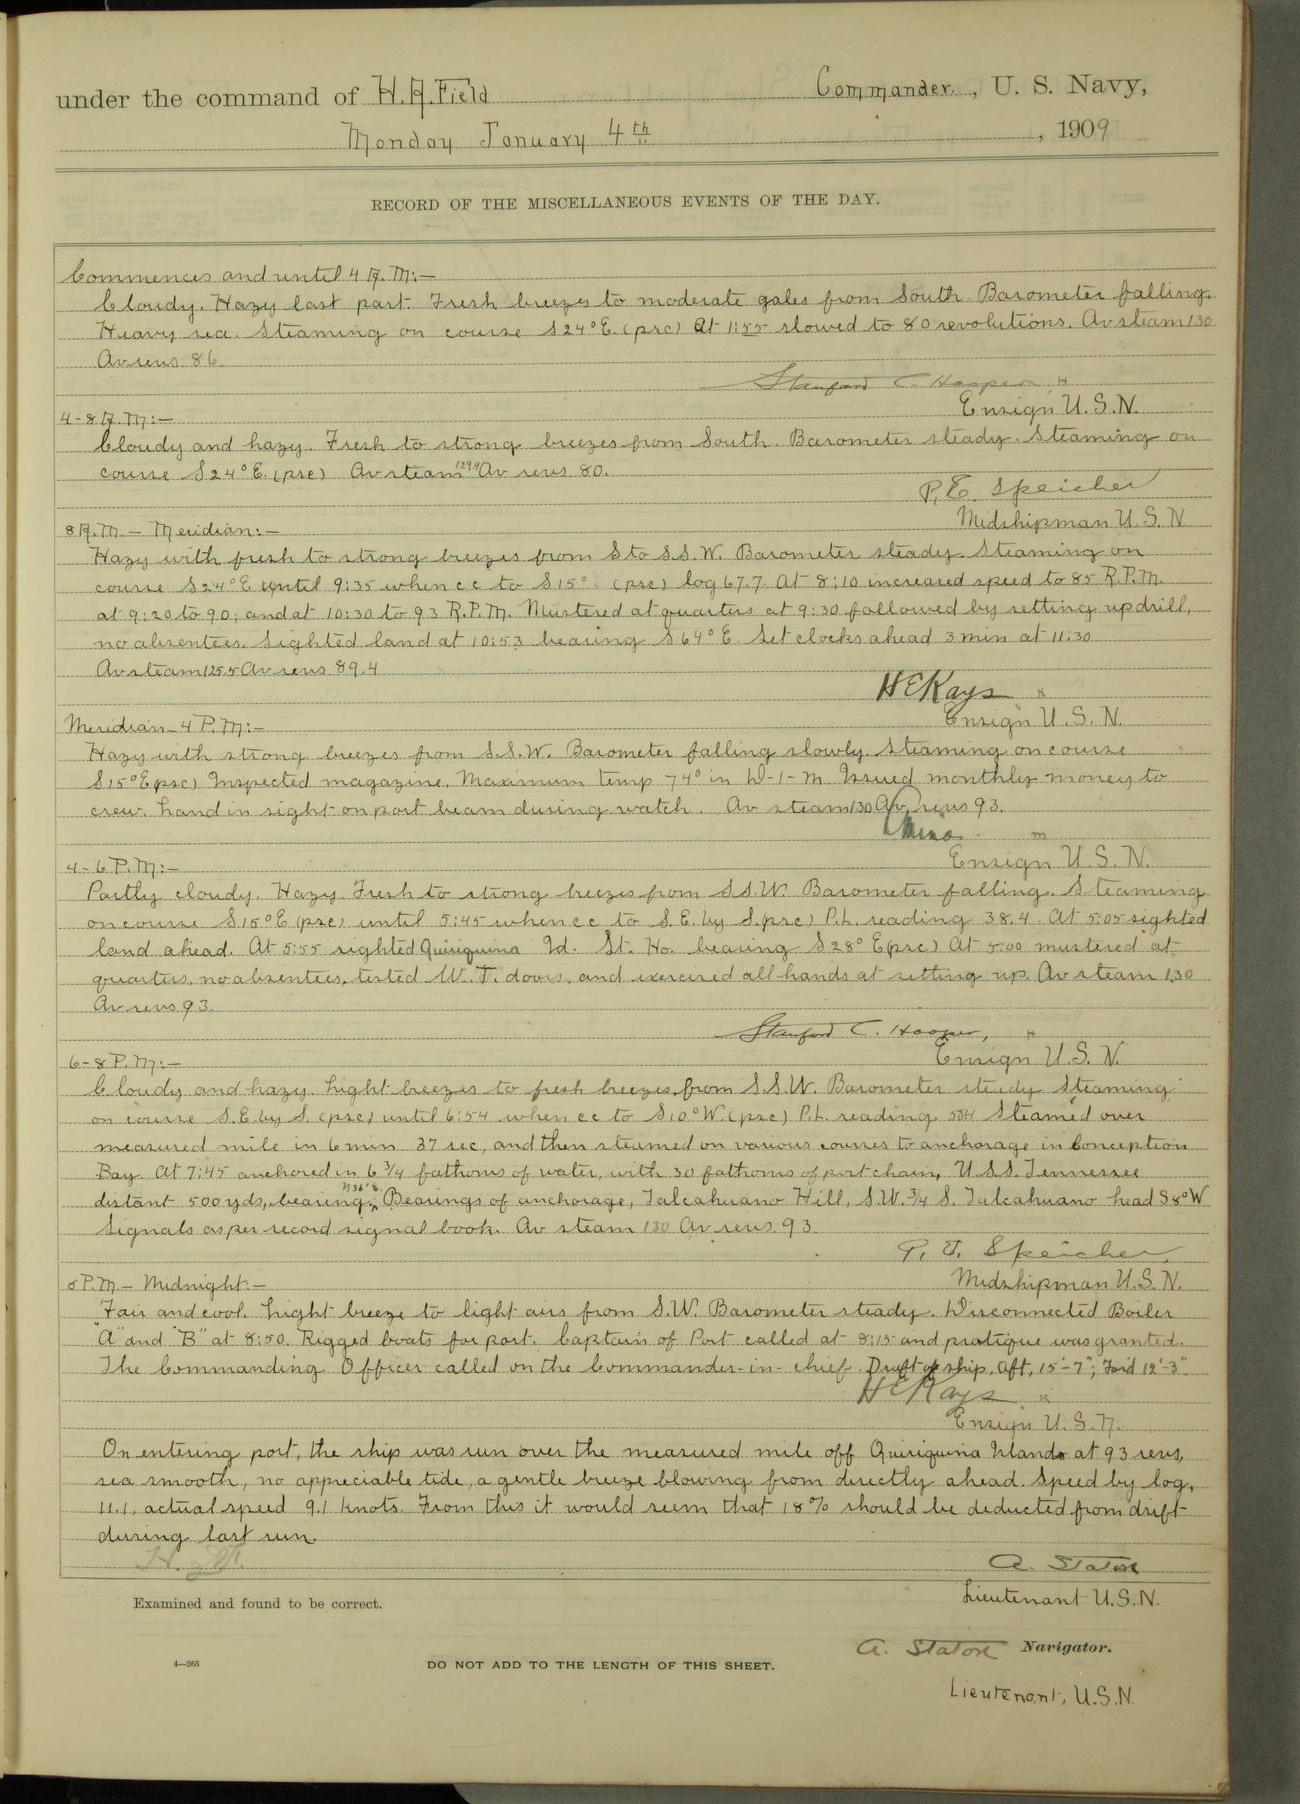 under the command of H.A. Field Commander, U. S. Navy,
Monday January 4th, 1909
RECORD OF THE MISCELLANEOUS EVENTS OF THE DAY.
Commences and until 4 A.M:—
Cloudy. Hazy last part. Fresh breezes to moderate gales from South. Barometer falling.
Heavy sea. Steaming on course S24°E. (psc) At 1:55 slowed to 80 revolutions. Av steam 130
Av revs 86.
Stanford C. Hooper
Ensign U.S.N.
4-8 A.M:—
Cloudy and hazy. Fresh to strong breezes from South. Barometer steady. Steaming on
course S24°E. (psc) Av steam 129.4 Av revs. 80.
P.E. Speicher
Midshipman U.S.N
8 A.M.— Meridian:—
Hazy with fresh to strong breezes from S to S.S.W. Barometer steady. Steaming on
course S24°E until 9:35 when cc to S15° (psc) log 67.7. At 8:10 increased speed to 85 R.P.M.
at 9:20 to 90; and at 10:30 to 93 R.P.M. Mustered at quarters at 9:30 followed by setting up drill,
no absentees. Sighted land at 10:53 bearing S64°E. Set clocks ahead 3 min at 11:30
Av steam 125.5 Av revs 89.4
H E Kays
Ensign U.S.N.
Meridian-4 P.M:—
Hazy with strong breezes from S.S.W. Barometer falling slowly. Steaming on course
S15°E psc) Inspected magazine. Maximum temp 74° in D-1-M. Issued monthly money to
crew. Land in sight on port beam during watch. Av steam 130 Av revs 93.
Ensign U.S.N.
4-6 P.M:—
Partly cloudy. Hazy. Fresh to strong breezes from S.S.W. Barometer falling. Steaming
on course S15°E (psc) until 5:45 when cc to S.E. by S. (psc) P.L. reading 38.4. At 5:05 sighted
land ahead. At 5:55 sighted Quiriquina Id. Lt. Ho. bearing S28°E(psc) At 5:00 mustered at
quarters, no absentees, tested W.T. doors, and exercised all hands at setting up. Av steam 130
Av revs 93.
Stanford C. Hooper,
Ensign U.S.N.
6-8 P.M:—
Cloudy and hazy. Light breezes to fresh breezes from S.S.W. Barometer steady Steaming
on course S.E. by S. (psc) until 6:54 when cc to S10°W. (psc) P.L. reading 50.4 Steamed over
measured mile in 6 min 37 sec, and then steamed on various courses to anchorage in Conception
Bay. At 7:45 anchored in 6 3/4 fathoms of water, with 30 fathoms of port chain, U.S.S. Tennessee
distant 500 yds, bearing N36°E Bearings of anchorage, Talcahuano Hill, S.W. 3/4 S. Talcahuano head S8°W
Signals as per record signal book. Av steam 130 Av revs. 93
P. E. Speicher,
Midshipman U.S.N.
8 P.M — Midnight:—
Fair and cool. Light breeze to light airs from S.W. Barometer steady. Disconnected Boiler
"A" and "B" at 8:50. Rigged boats for port. Captain of Port called at 8:15 and pratique was granted.
The Commanding Officer called on the Commander-in-chief. Draft of ship, aft, 15'-7"; For'd 12'-3".
H E Kays
Ensign U.S.N.
On entering port, the ship was run over the measured mile off Quiriquina Islands at 93 revs,
sea smooth, no appreciable tide, a gentle breeze blowing from directly ahead. Speed by log,
11.1, actual speed 9.1 knots. From this it would seem that 18% should be deducted from drift
during last run.
A. Staton
Lieutenant U.S.N.
Examined and found to be correct.
A. Staton Navigator.
4—265
DO NOT ADD TO THE LENGTH OF THIS SHEET.
Lieutenant, U.S.N.